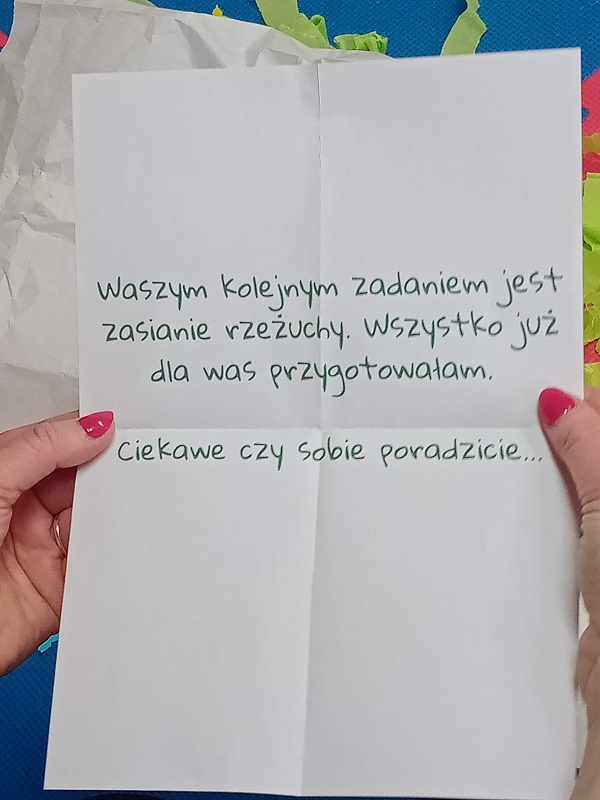 Waszym kolejnym zadaniem jest
zasianie rzeżuchy. Wszystko już
dla was przygotowałam.
Ciekawe czy sobie poradzicie...